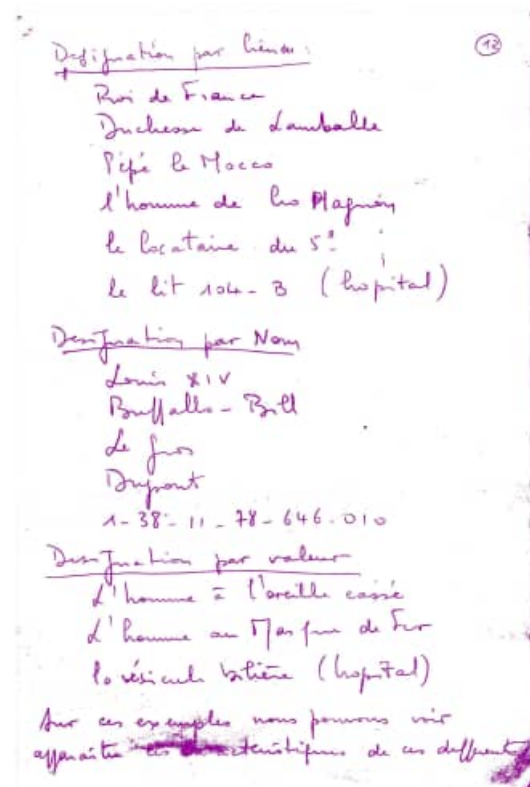 12
Designation par liens :
Roi de France
Duchesse de Lamballe
Pépé le Mocco
l'homme de Cro Magnon
le locataire du 5e
le lit 104 - B (hopital)
Designation par Nom
Louis XIV
Buffallo - Bill
Le gros
Dupont
1 - 38 - 11 - 78 - 646 . 010
Designation par valeur
L'homme à l'oreille cassé
L'homme au Masque de Fer
la vésicule bilière (hopital)
Sur ces exemples nous pouvons voir
apparaitre les caractéristiques de ces différents